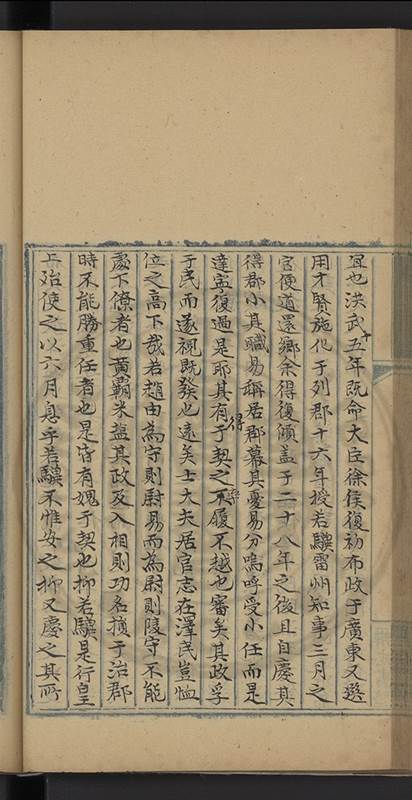 宜也洪武十五年既命大臣徐侯復初布政于廣東又選
用才賢施化于列郡十六年授若驥雷州知事三月之
官便道還鄉余得復傾盖于二十八年之後且自慶其
得郡小其職易稱居郡幕其憂易分嗚呼受小任而是
達寧復過是耶其有得于契之不履不越也審矣其政孚
于民而遂視既發也遠矣士大夫居官志在澤民豈恤
位之高下哉若趙由為守則尉易而為尉則陵守不能
處下僚者也黄霸米盐其政及入相則功名損于治郡
時不能勝重任者也是皆有媿于契也抑若驥是行皇
上殆使之以六月息乎若驥不惟安之抑又慶之其所